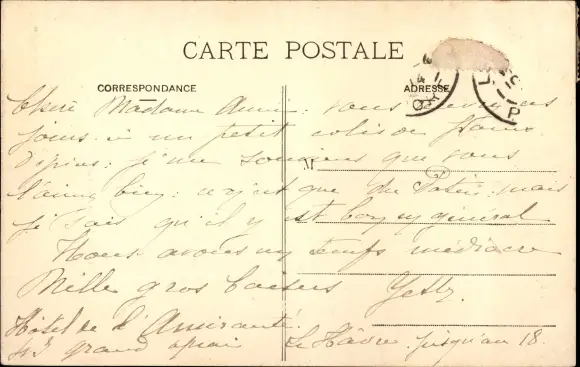 CARTE POSTALE
CORRESPONDANCE
ADRESSE
Chère Madame vous recevrez ces
jours-ci un petit colis de
d'épices: je me souviens que vous
M
l'aimez bien: ce n'est que du mais
je sais qu'il y est bon en général
Nous avons un temps médiocre
Mille gros baisers
Hôtel de l'Amirauté.
43 grand quai Le Hâvre. jusqu'au 18.